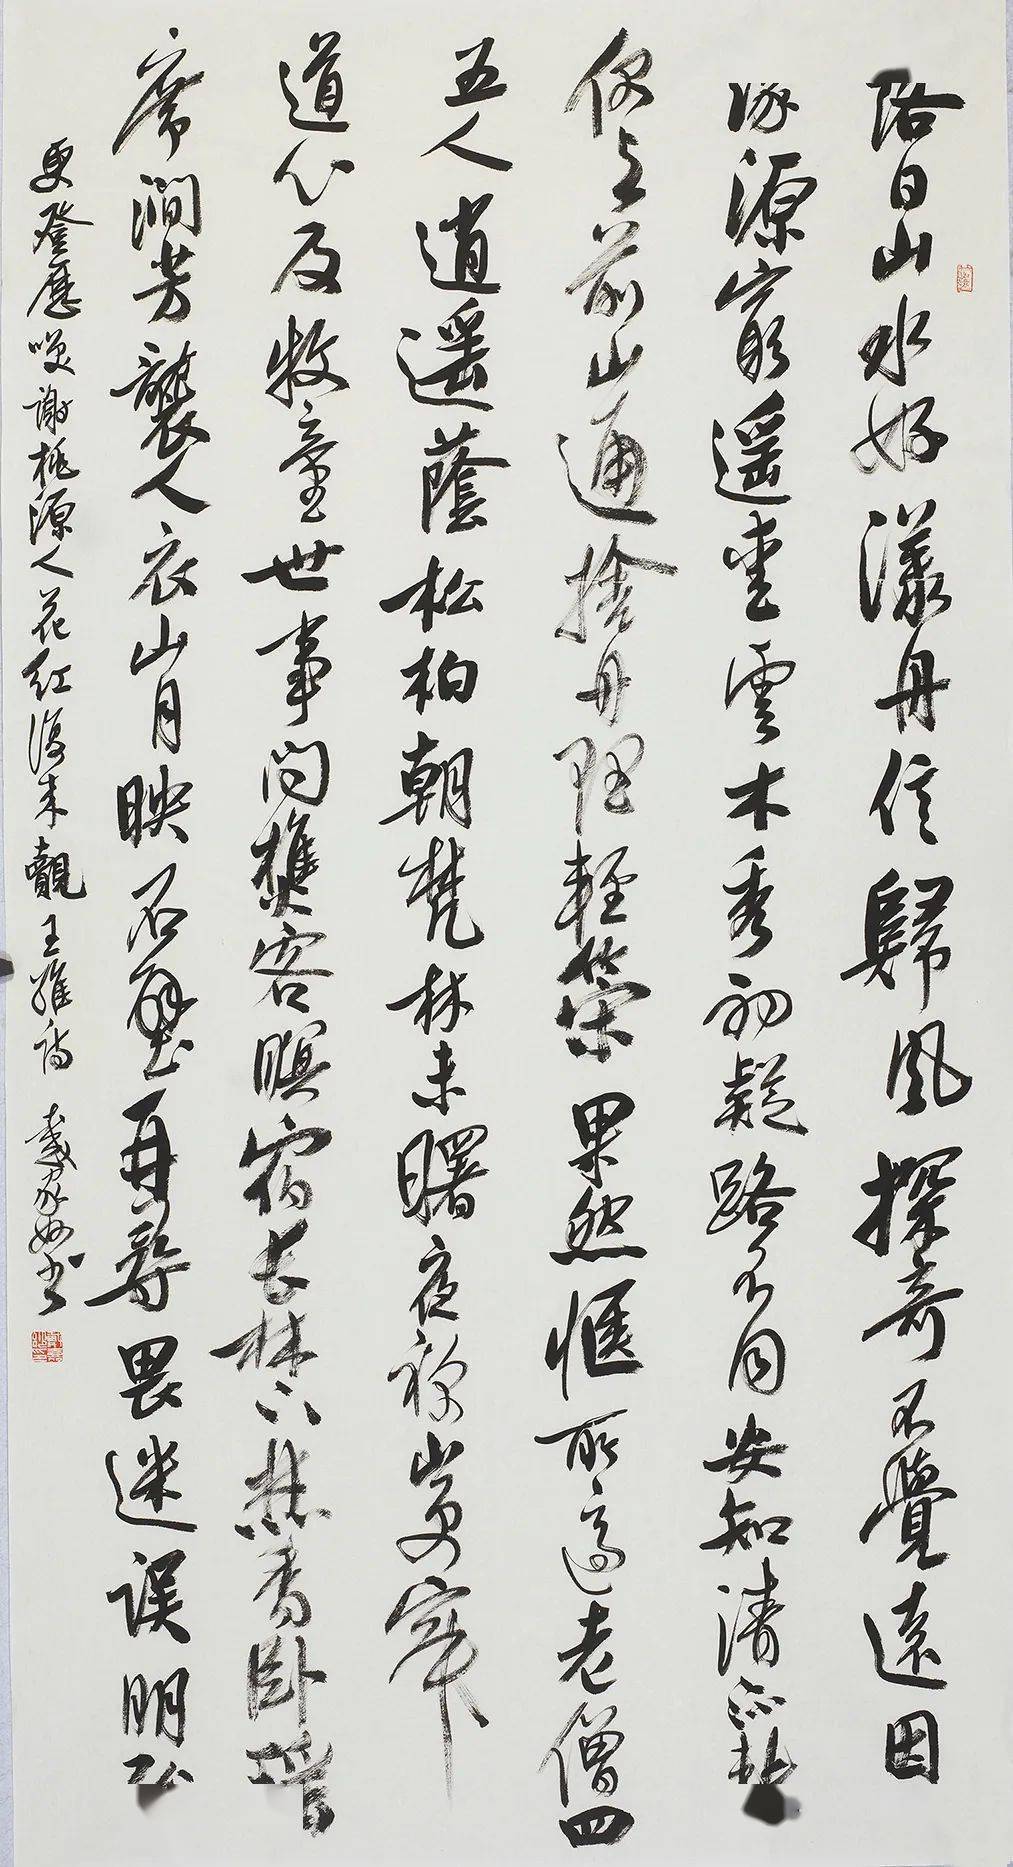 落日山水好漾舟信歸風探奇不覺遠因
緣源窮遙愛雲木秀初疑路不同安知清流
偶與前山通捨舟理輕策果然愜所適老僧四
五人逍遙蔭松柏朝梵林未曙夜禪山更寂
道心及牧童世事問樵客暝宿長林下焚香臥瑤
席澗芳襲人衣山月映石壁再尋畏迷誤明
更登歷唉謝桃源人花紅復來覿王維詩 戴家妙書